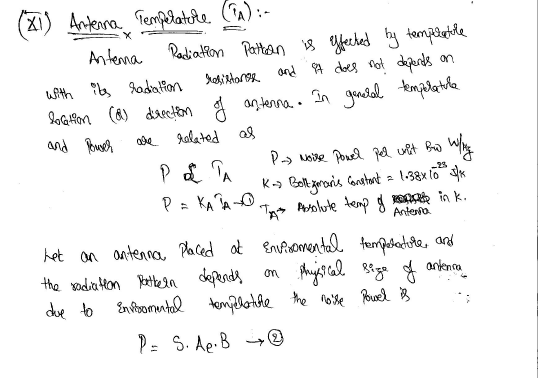 (XI) Antenna Temperature (TA) :-
Antenna Radiation Pattern is effected by temperature
with its radiation resistance and it does not depends on
location (or) direction of antenna. In general temperature
and Power are related as
P α TA
P → Noise Power per unit BW W/Hz
K → Boltzman's Constant = 1.38x10^-23 J/K
P = KA TA → ①
TA → Absolute temp of Antenna in K.
Let an antenna placed at Enviromental temperature, and
the radiation Pattern depends on Physical size of antenna
due to Enviromental temperature the noise Power is
P = S. Ae. B → ②